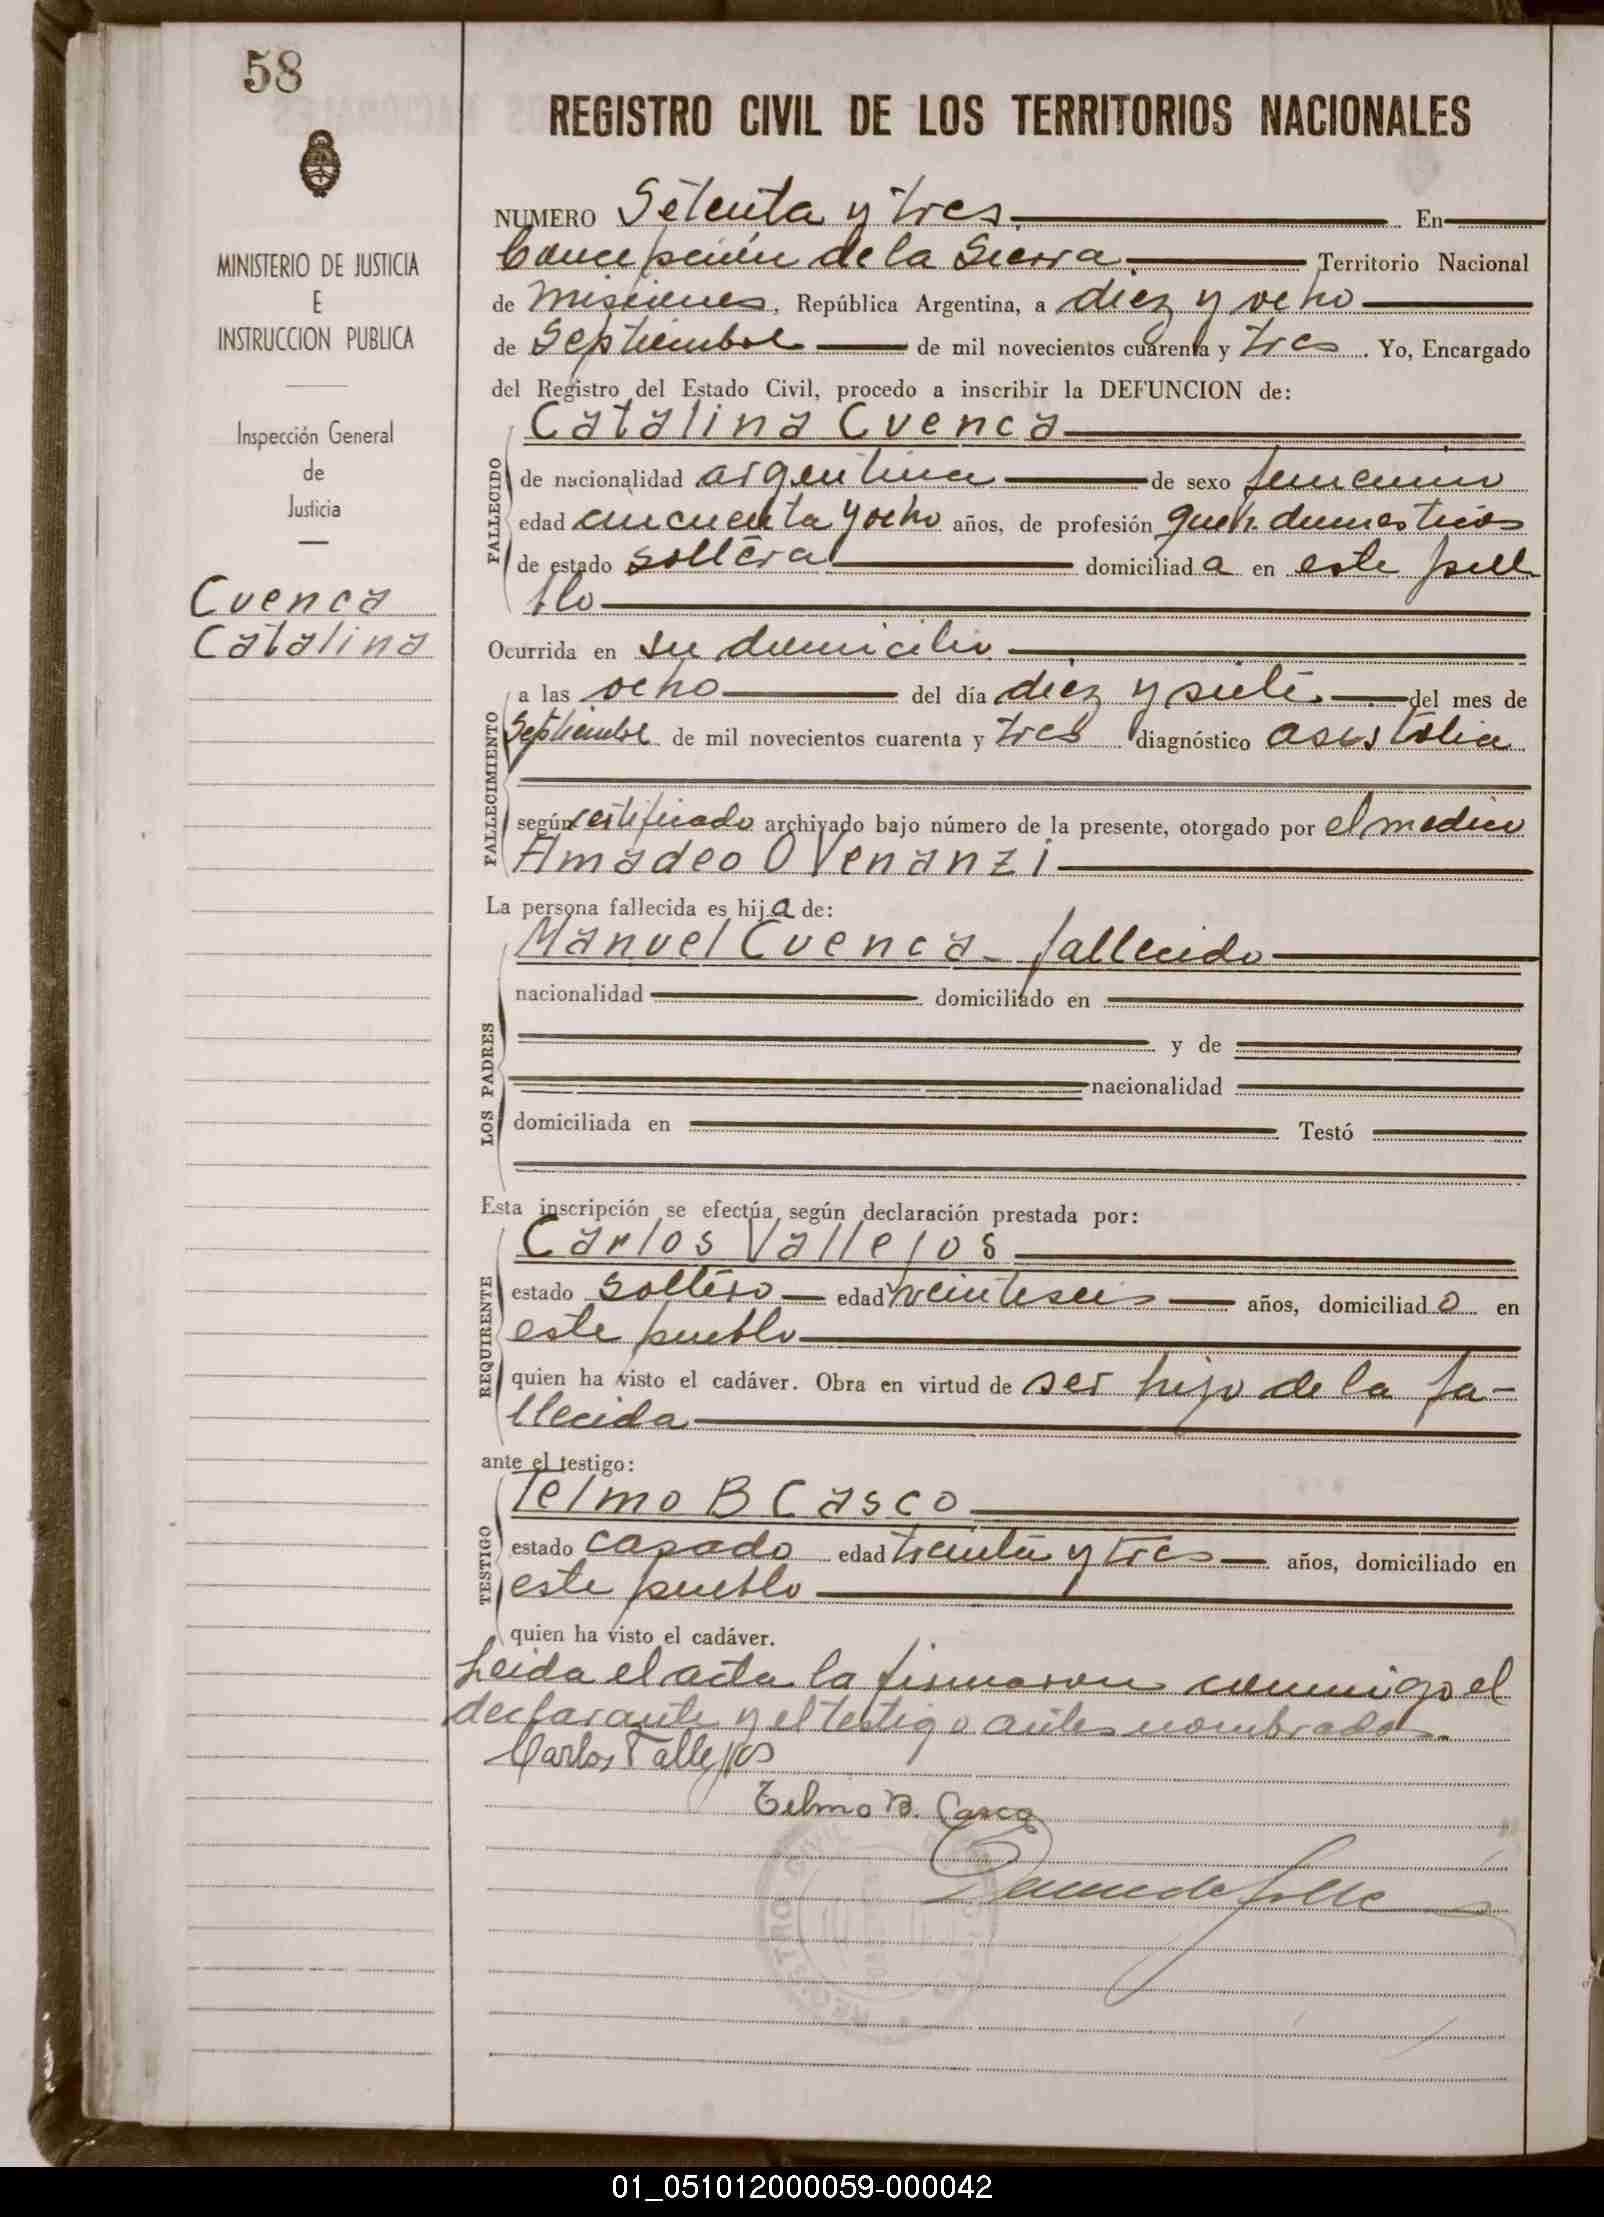 58
REGISTRO CIVIL DE LOS TERRITORIOS NACIONALES
MINISTERIO DE JUSTICIA
E
INSTRUCCION PUBLICA
Inspección General
de
Justicia
Cuenca
Catalina
NUMERO Setenta y tres En
Concepción de la Sierra. Territorio Nacional
de Misiones, República Argentina, a diez y ocho
de Septiembre de mil novecientos cuarenta y tres. Yo, Encargado
del Registro del Estado Civil, procedo a inscribir la DEFUNCION de:
Catalina Cuenca
FALLECIDO
de nacionalidad argentina de sexo femenino
edad cincuenta y ocho años, de profesión queh. domesticos
de estado soltera domiciliada en este pue
blo
Ocurrida en su domicilio
FALLECIMIENTO
a las ocho del día diez y siete del mes de
Septiembre de mil novecientos cuarenta y tres diagnóstico asistolia
según certificado archivado bajo número de la presente, otorgado por el medico
Amadeo O Venanzi
La persona fallecida es hija de:
LOS PADRES
Manuel Cuenca - fallecido
nacionalidad domiciliado en
y de
nacionalidad
domiciliada en Testó
Esta inscripción se efectúa según declaración prestada por:
REQUIRENTE
Carlos Vallejos
estado soltero edad veinteseis años, domiciliado en
este pueblo
quien ha visto el cadáver. Obra en virtud de ser hijo de la fa-
llecida
ante el testigo:
TESTIGO
Telmo B Casco
estado casado edad treinta y tres años, domiciliado en
este pueblo
quien ha visto el cadáver.
Leida el acta la firmaron conmigo el
declarante y el testigo antes nombrados.
Carlos Vallejos
Telmo B. Casco
REGISTRO CIVIL
01_051012000059-000042